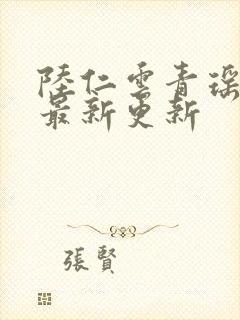 陸仁雲青瑶
最新更新
張賢